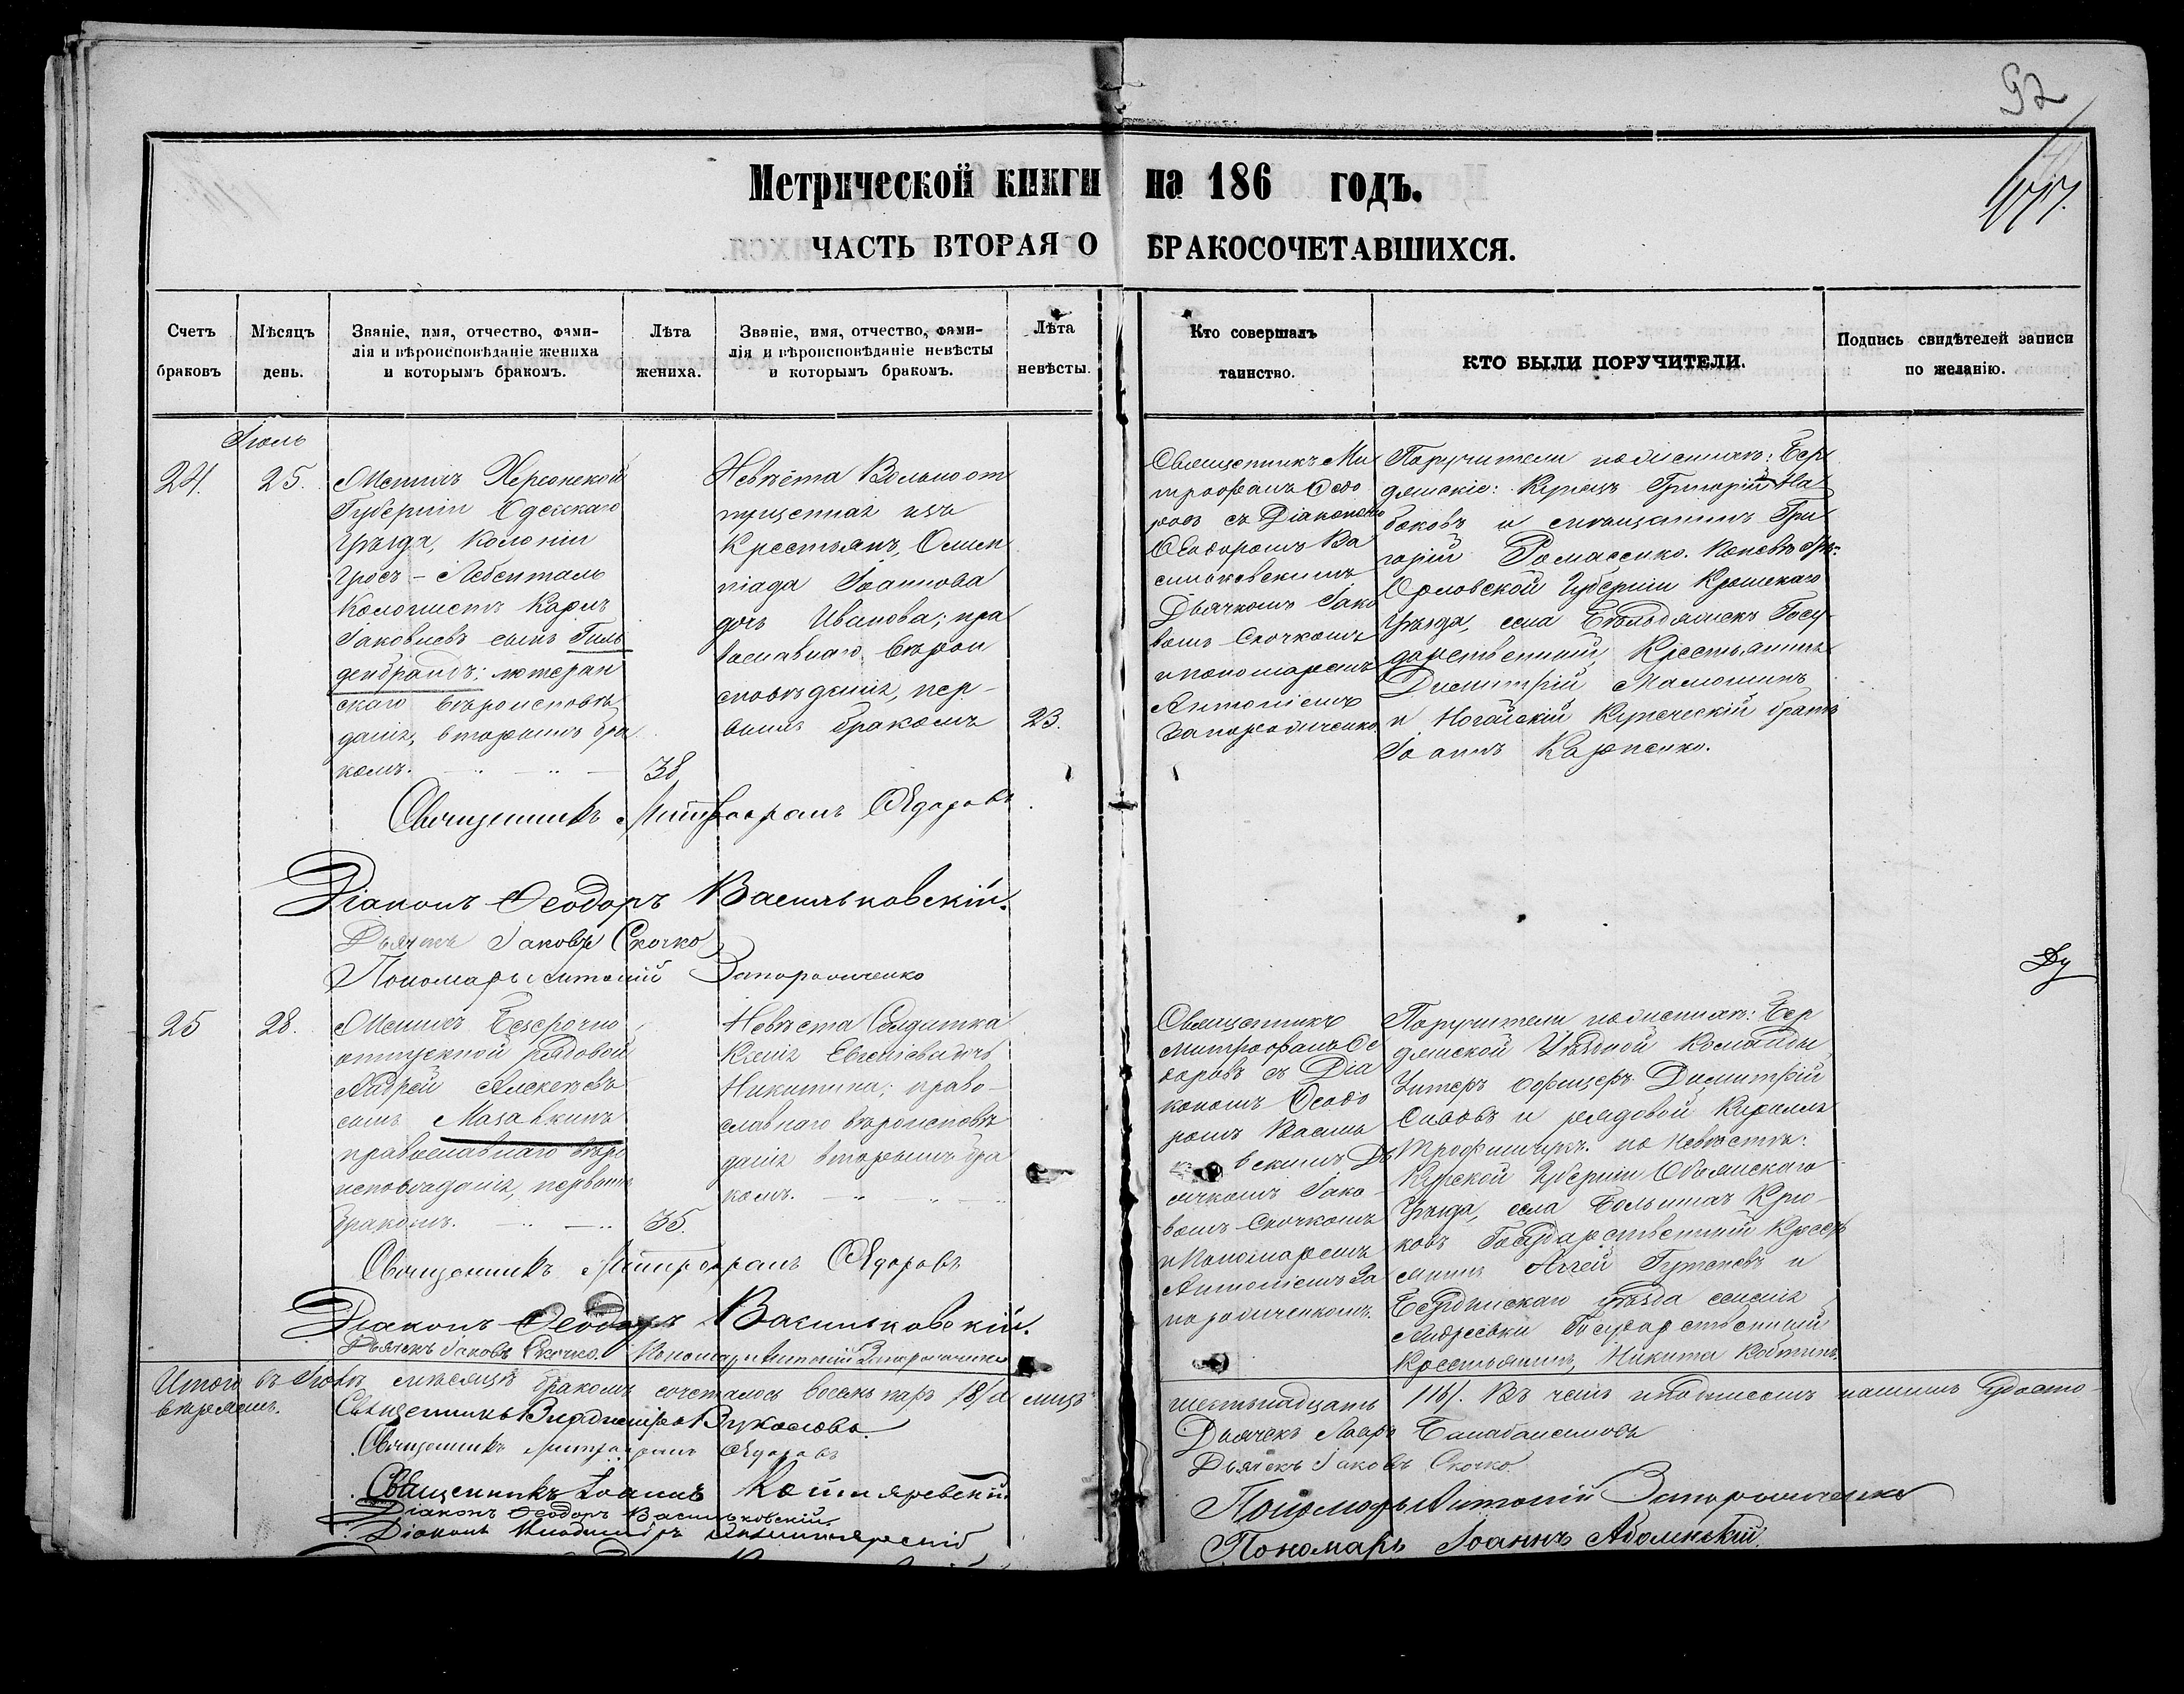 92
Метрической книги на 186 годъ.
177.
ЧАСТЬ ВТОРАЯ О БРАКОСОЧЕТАВШИХСЯ.
Счетъ
браковъ
Мѣсяцъ
день.
Званіе, имя, отчество, фами-
лія и вѣроисповѣданіе жениха
и которымъ бракомъ.
Лѣта
жениха.
Званіе, имя, отчество, фами-
лія и вѣроисповѣданіе невѣсты
и которымъ бракомъ.
Лѣта
невѣсты.
Кто совершалъ
таинство.
КТО БЫЛИ ПОРУЧИТЕЛИ.
Подпись свидѣтелей записи
по желанію.
Іюль
24.
25.
Женихъ Херсонской
Губерніи Одесскаго
Уѣзда, Колоніи
Гросъ-Либенталь
Колонистъ Карлъ
Іаковлевъ сынъ Гиль
дебрандъ; лютеран
скаго вѣроисповѣ
данія, вторымъ бра
комъ.
38
Невѣста Вольноот
пущенная изъ
Крестьянъ, Олим
піада Іоаннова
дочь Иванова; пра
вославнаго вѣрои
сповѣданія, пер-
вымъ бракомъ
23.
Священникъ Ми
трофанъ Ѳедо
ровъ съ Діакономъ
Ѳеодоромъ Ва
сильковскимъ
Дьячкомъ Іако
вомъ Скочкомъ
и пономаремъ
Антоніемъ
Запорожченко.
Поручители по женихѣ: Бер
дянскіе: Купецъ Григорій На
боковъ и мѣщанинъ Гри
горій Томасенко. По невѣстѣ:
Орловской Губерніи Кромскаго
Уѣзда, села Госу-
дарственный Крестьянинъ
Димитрій
и Ногайскій Купеческій братъ
Іоаннъ Карпенко.
Священникъ Митрофанъ Ѳедоровъ
Діаконъ Ѳеодоръ Васильковскій.
Дьячекъ Іаковъ Скочко
Пономарь Антоній Запорожченко
25
28.
Женихъ Безсрочно
отпускной рядовой
Андрей Алексѣевъ
сынъ Мазавкинъ
православнаго вѣро
исповѣданія, первымъ
бракомъ.
35.
Невѣста Солдатка
Ксенія Евгеніева дочь
Никитина; право-
славнаго вѣроисповѣ
данія вторымъ бра
комъ.
Священникъ
Митрофанъ Ѳе
доровъ съ Діа
кономъ Ѳеодо
ромъ Василь
ковскимъ Дь
ячкомъ Іако-
вомъ Скочкомъ
и Пономаремъ
Антоніемъ За
порожченкомъ.
Поручители по женихѣ: Бер
дянской Уѣздной Команды
Унтеръ офицеръ Димитрій
и рядовой Кириллъ
Трофимчукъ. по невѣстѣ:
Курской Губерніи Обоянскаго
Уѣзда, села Большихъ Крю-
ковъ Государственный Крестья
нинъ Аггей и
Бердянскаго уѣзда селенія
Андреевки Государственный
Крестьянинъ, Никита
Священникъ Митрофанъ Ѳедоровъ
Діаконъ Ѳеодоръ Васильковскій.
Дьячекъ Іаковъ Скочко. Пономарь Антоній Запорожченко
Итого въ Іюлѣ мѣсяцѣ бракомъ сочеталось восемь паръ /8/ а лицъ шестьнадцать /16/. Въ чемъ и подписомъ нашимъ удосто-
вѣряемъ.
Священникъ Владиміръ
Священникъ Митрофанъ Ѳедоровъ
Священникъ Іоаннъ Котляревскій
Діаконъ Ѳеодоръ Васильковскій
Діаконъ
Дьячекъ
Дьячекъ Іаковъ Скочко.
Пономарь Антоній Запорожченко
Пономарь Іоаннъ